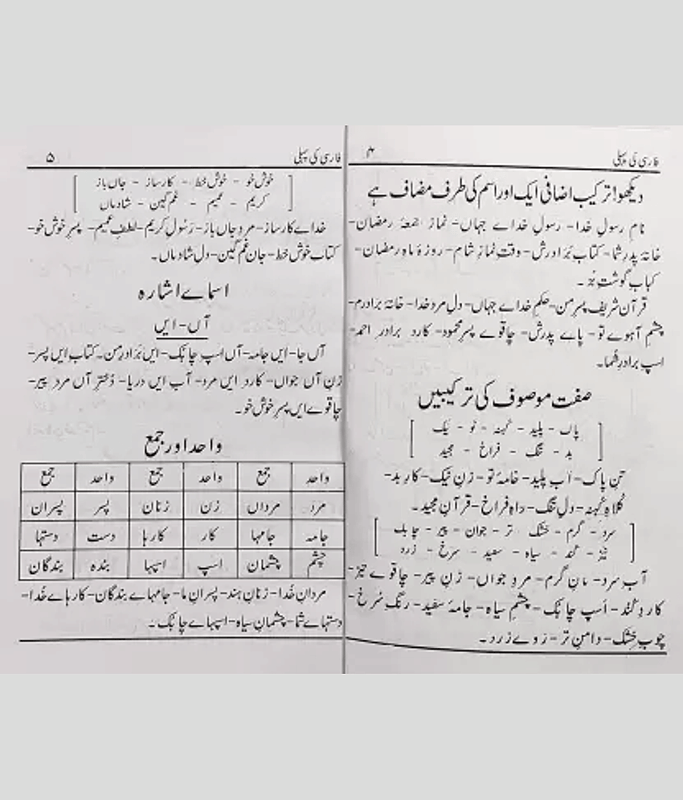 فارسی کی پہلی ۴
دیکھو! ترکیب اضافی ایک اور اسم کی طرف مضاف ہے
نام رسولِ خدا - رسولِ خداے جہاں - نماز جمعۂ رمضان -
خانۂ پدرِ شما - کتاب برادرش - وقتِ نمازِ شام - روزۂ ماہِ رمضان -
کبابِ گوشتِ بز -
قرآن شریف پسرِ من - حکمِ خداے جہاں - دلِ مردِ خدا - خانۂ برادرم -
چشمِ آہوے تو - پاے پدرش - چاقوے پسرِ محمود - کارد برادرِ احمد -
اسپِ برادرِ شما -
صفت موصوف کی ترکیبیں
پاک - پلید - کہنہ - نو - نیک
بد - تنگ - فراخ - مجید
تنِ پاک - آبِ پلید - خامۂ نو - زنِ نیک - کارِ بد -
کلاہِ کہنہ - دلِ تنگ - راہِ فراخ - قرآنِ مجید -
سرد - گرم - خشک - تر - جوان - پیر - چابک
تیز - کند - سیاہ - سفید - سرخ - زرد
آبِ سرد - نانِ گرم - مردِ جواں - زنِ پیر - چاقوے تیز -
کاردِ کُند - اسپِ چابک - چشمِ سیاہ - جامۂ سفید - رنگِ سُرخ -
چوبِ خشک - دامنِ تر - روے زرد -
فارسی کی پہلی ۵
خوش خو - خوش خط - کارساز - جاں باز
کریم - عمیم - غم گین - شادماں
خداے کارساز - مردِ جاں باز - رَسُولِ کریم - لطفِ عمیم - پسرِ خوش خو -
کتاب خوش خط - جان غم گین - دلِ شادماں -
اسماے اشارہ
آں - ایں
آں جا - ایں جامہ - آں اسپِ چابک - ایں برادرِ من - کتاب ایں پسر -
زنِ آں جواں - کاردِ ایں مرد - آبِ ایں دریا - دُخترِ آں مردِ پیر -
چاقوے ایں پسرِ خوش خو -
واحد اور جمع
واحد جمع واحد جمع واحد جمع
مرد مرداں زن زنان پسر پسران
جامہ جامہا کار کارہا دست دستہا
چشم چشمان اسپ اسپہا بندہ بندگان
مردانِ خُدا - زنانِ ہند - پسرانِ ما - جامہاے بندگان - کارہاے خُدا -
دستہاے شما - چشمانِ سیاہ - اسپہاے چابک -